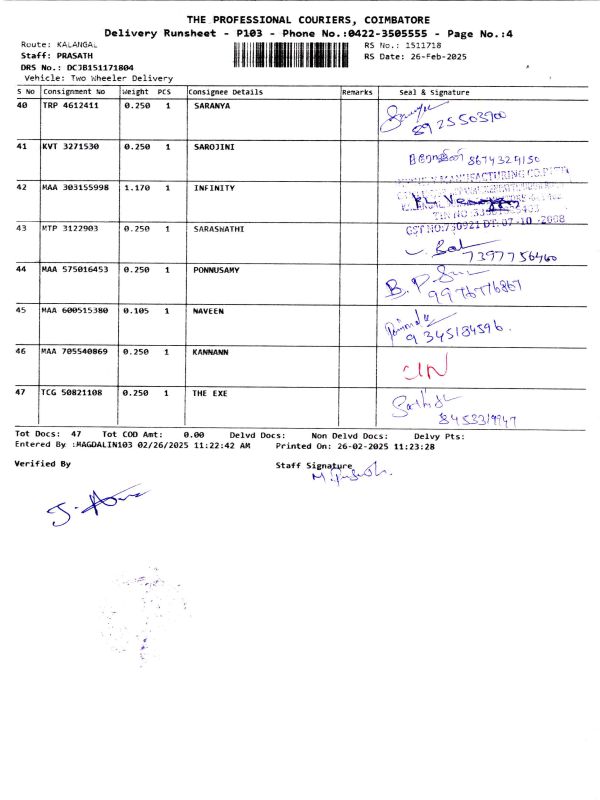 THE PROFESSIONAL COURIERS, COIMBATORE
Delivery Runsheet - P103 - Phone No.:0422-3505555 - Page No.:4
Route: KALANGAL RS No.: 1511718
Staff: PRASATH RS Date: 26-Feb-2025
DRS No.: DCJB151171804
Vehicle: Two Wheeler Delivery
S No Consignment No Weight PCS Consignee Details Remarks Seal & Signature
40 TRP 4612411 0.250 1 SARANYA
8925503900
41 KVT 3271530 0.250 1 SAROJINI
சரோஜினி 8674329150
42 MAA 303155998 1.170 1 INFINITY
MANUFACTURING CO.
CST NO:730921 DT: 07-10-2008
43 MTP 3122903 0.250 1 SARASWATHI
7397756460
44 MAA 575016453 0.250 1 PONNUSAMY
B. P.
9976776867
45 MAA 600515380 0.105 1 NAVEEN
9345184596.
46 MAA 705540869 0.250 1 KANNANN
47 TCG 50821108 0.250 1 THE EXE
8453319947
Tot Docs: 47 Tot COD Amt: 0.00 Delvd Docs: Non Delvd Docs: Delvy Pts:
Entered By :MAGDALIN103 02/26/2025 11:22:42 AM Printed On: 26-02-2025 11:23:28
Verified By Staff Signature